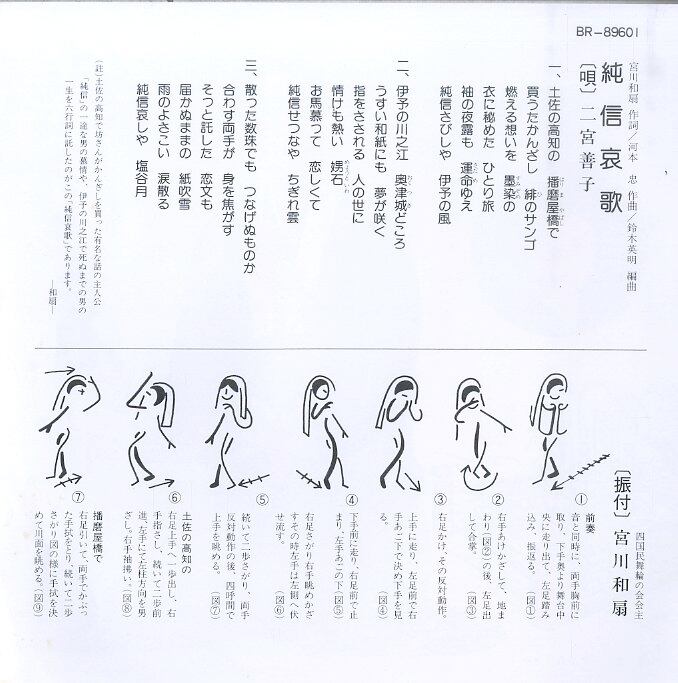 BR-89601
宮川和扇 作詞／河本 忠 作曲／鈴木英明 編曲
純信哀歌
〔唄〕二宮善子
一、土佐の高知の 播磨屋橋で
買うたかんざし 緋のサンゴ
燃える想いを 墨染の
衣に秘めた ひとり旅
袖の夜露も 運命ゆえ
純信さびしや 伊予の風
二、伊予の川之江 奥津城どころ
うすい和紙にも 夢が咲く
指をさされる 人の世に
情けも熱い 娚石
お馬慕って 恋しくて
純信せつなや ちぎれ雲
三、散った数珠でも つなげぬものか
合わす両手が 身を焦がす
そっと託した 恋文も
届かぬままの 紙吹雪
雨のよさこい 涙散る
純信哀しや 塩谷月
（註）土佐の高知で坊さんがかんざしを買った有名な話の主人公
「純信」の一途な男の慕情や、伊予の川之江で死ぬまでの男の
一生を六行詞に託したのがこの「純信哀歌」であります。
―和扇―
四国民舞輪の会会主
〔振付〕宮川和扇
① 前奏
音と同時に、両手胸前に
取り、下手奥より舞台中
央に走り出て、左足踏み
込み、振返る。（図①）
②
右手あけかざして、地ま
わり（図②）の後、左足出
して合掌。（図③）
③
右足かけ、その反対動作。
上手に走り、左足前で右
手あご下で決め下手を見
る。（図④）
④
下手前に走り、右足前で止
まり、左手あごの下（図⑤）
右足さがり右手眺めかざ
すその時左手は左側へ伏
せ流す。（図⑥）
⑤
続いて二歩さがり、両手
反対動作の後、四呼間で
下手を眺める。（図⑦）
⑥
土佐の高知の
右足上手へ一歩出し、右
手指さし、続いて二歩前
進、左手にて左柱方向を男
ざし。右手袖拂い。（図⑧）
⑦
播磨屋橋で
右足引いて、両手でかぶっ
た手拭をとり、続いて二歩
さがり図の様に手拭を決
めて川面を眺める。（図⑨）